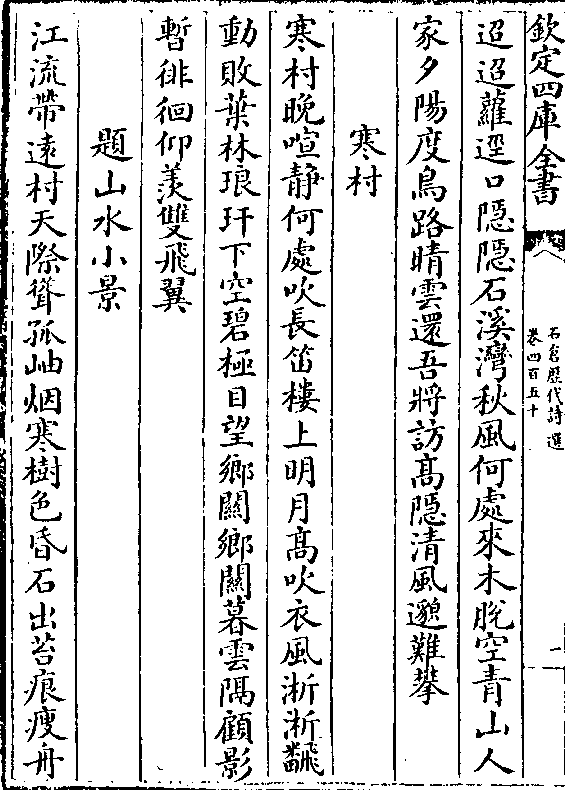 欽定四庫全書
石倉歷代詩選
卷四百五十
二
迢迢蘿逕口隱隱石溪灣秋風何處來木脫空青山人
家夕陽度鳥路晴雲還吾將訪髙隱清風邈難攀
寒村
寒村晚喧静何處吹長笛樓上明月髙吹衣風淅淅飜
動敗葉林琅玕下空碧極目望鄉關鄉關暮雲隔顧影
暫徘徊仰羡雙飛翼
題山水小景
江流帶遠村天際聳孤岫烟寒樹色昏石出苔痕瘦舟